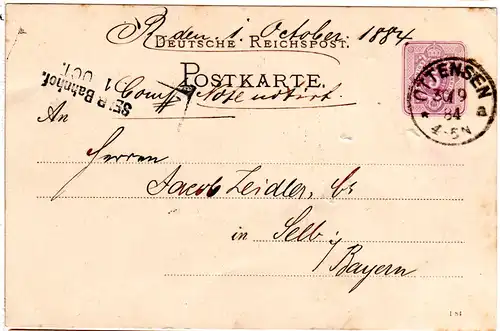 R. den. 1. October. 1884
DEUTSCHE REICHSPOST.
POSTKARTE.
SELB Bahnhof.
1 OCT.
Note notirt.
OTTENSEN
30/9
84
* 4-5N a
An
Herren
Jacob Zeidler,
in Selb i/
Bayern
184